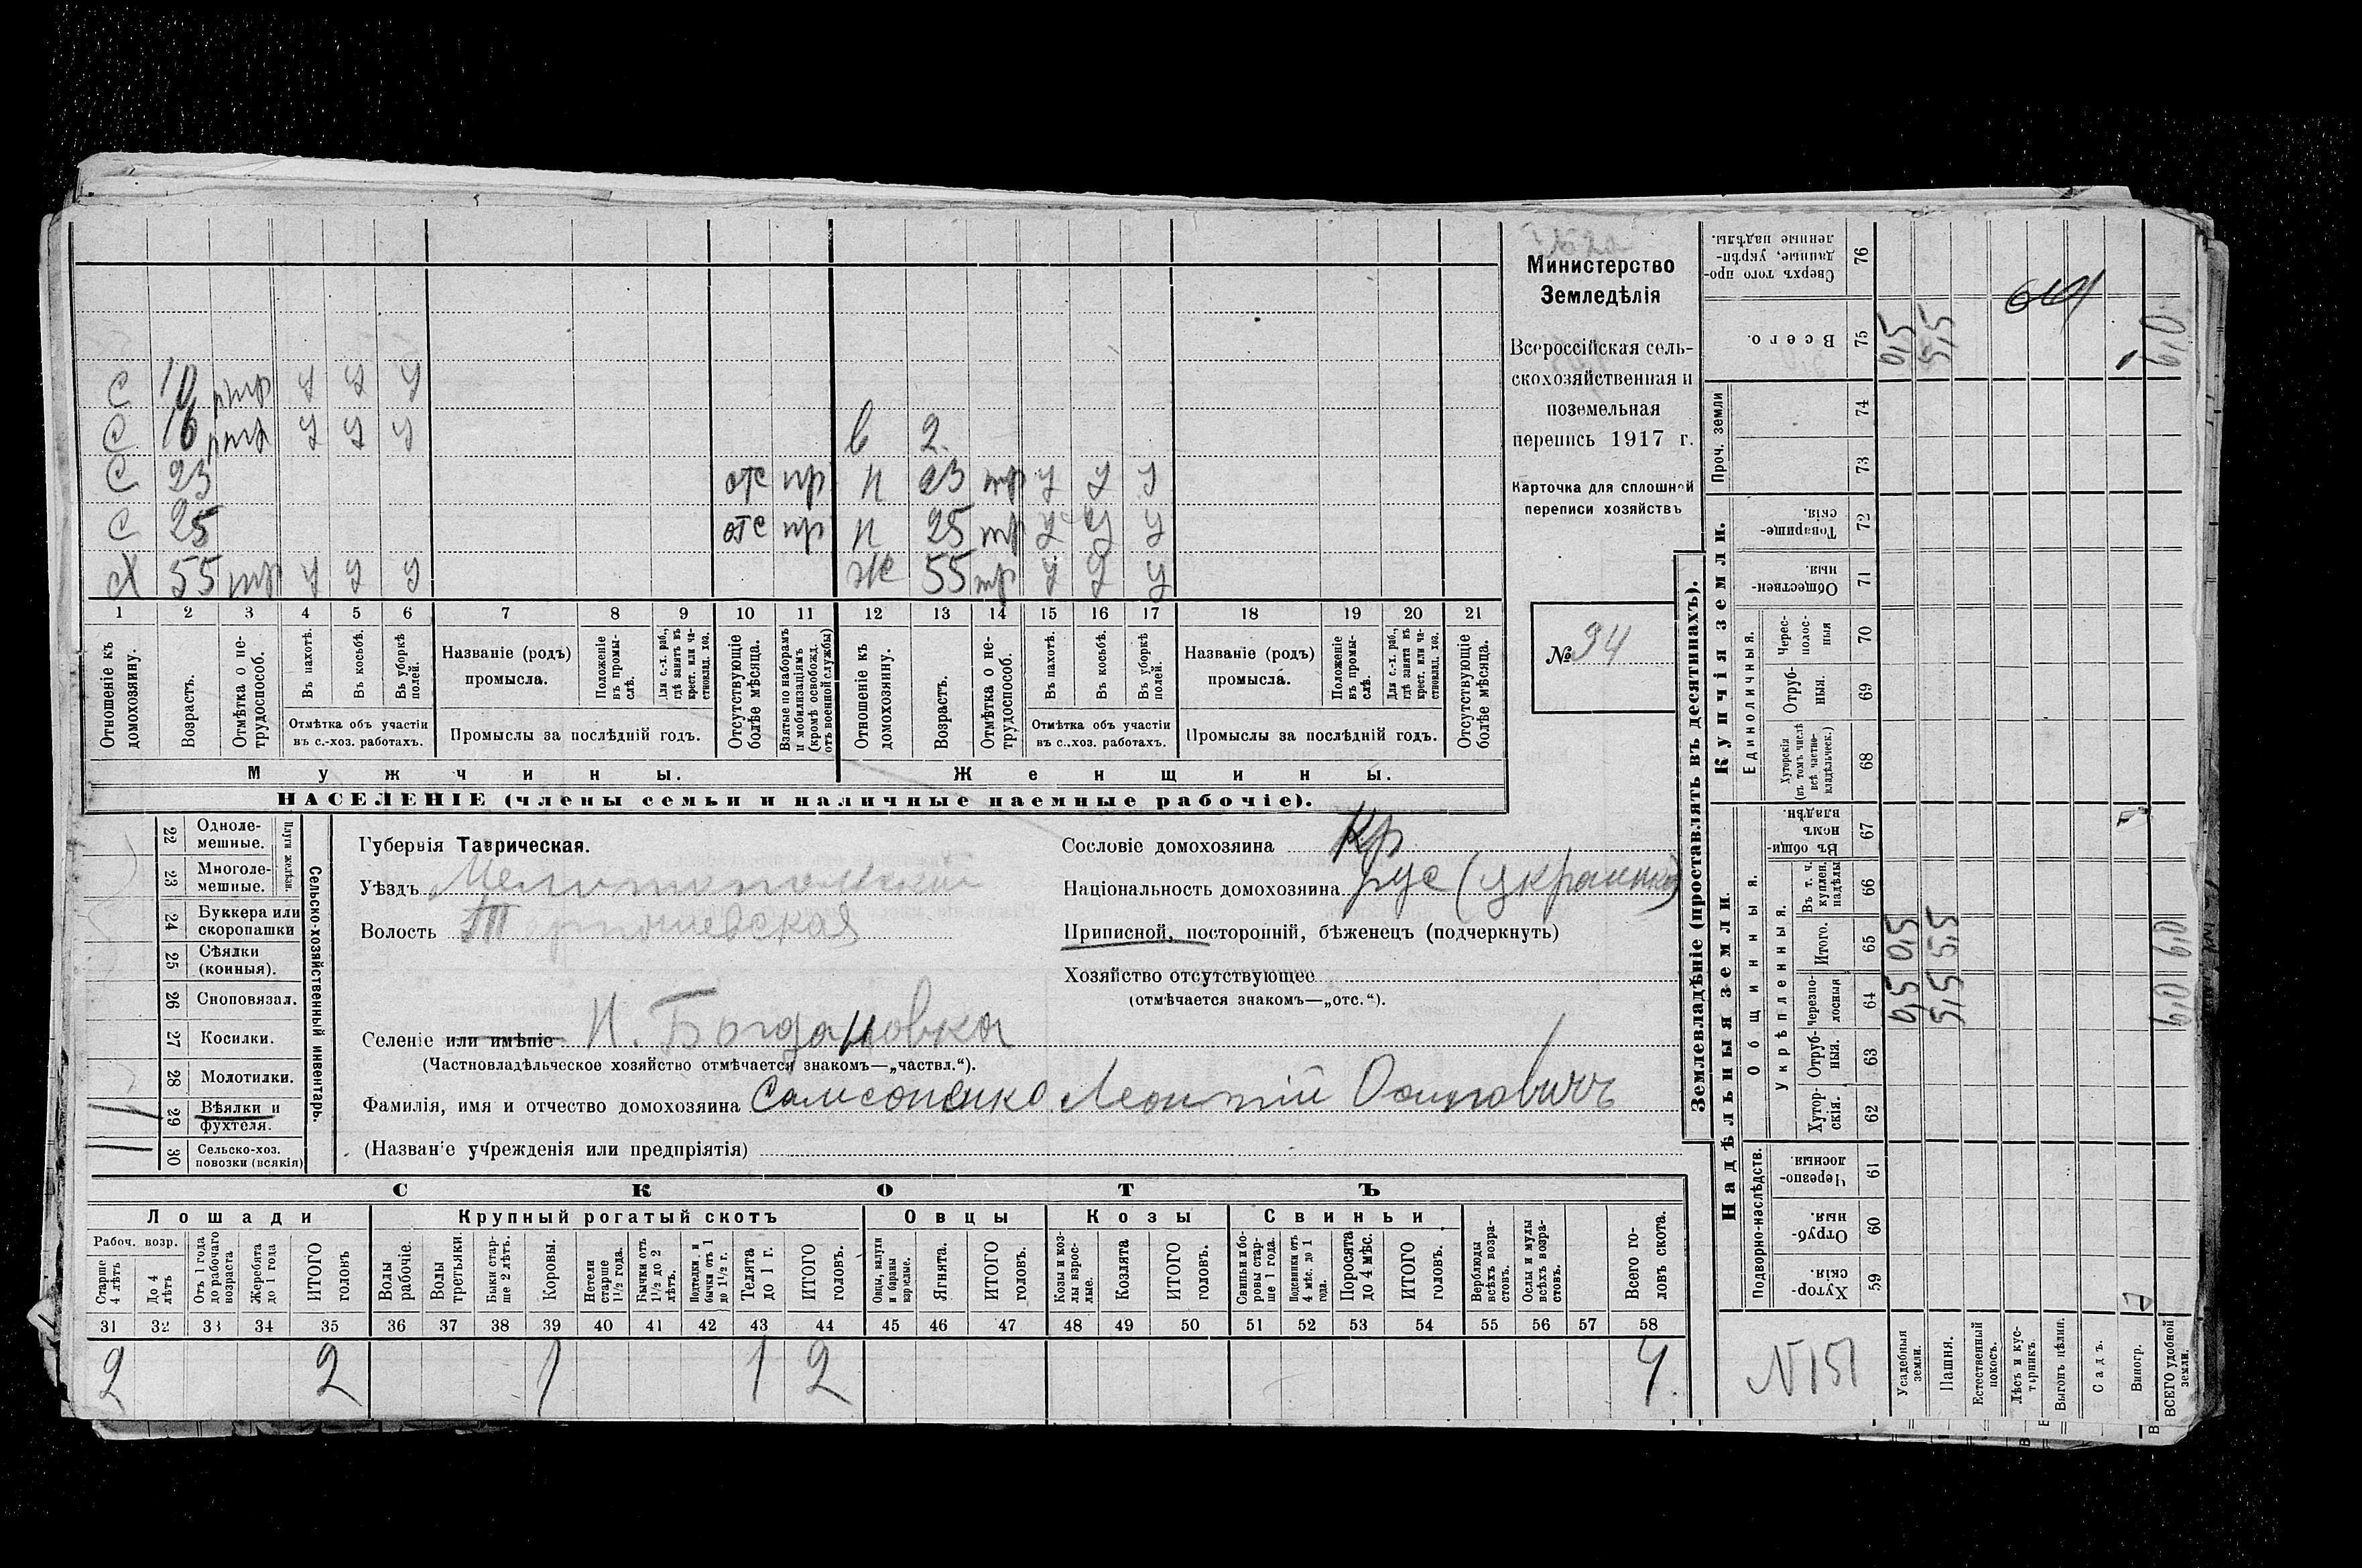 С 10 мтр У У У
С 16 мтр У У У
в 2
С 23 отс пр н 23 мтр У У У
С 25 отс пр н 25 мтр У У У
Х 55 мтр У У У Ж 55 мтр У У У
1 2 3 4 5 6 7 8 9 10 11 12 13 14 15 16 17 18 19 20 21
Отношеніе къ домохозяину.
Возрастъ.
Отмѣтка о нетрудоспособ.
Въ пахотѣ.
Въ косьбѣ.
Въ уборкѣ полей.
Отмѣтка объ участіи
въ с.-хоз. работахъ.
Названіе (родъ)
промысла.
Положеніе въ промыслѣ.
Для с.-х. раб., гдѣ занятъ въ крест. или частновлад. хоз.
Промыслы за послѣдній годъ.
Отсутствующіе болѣе мѣсяца.
Взятые по наборамъ и мобилизаціямъ (кромѣ освобожд. отъ военной службы)
Отношеніе къ домохозяину.
Возрастъ.
Отмѣтка о нетрудоспособ.
Въ пахотѣ.
Въ косьбѣ.
Въ уборкѣ полей.
Отмѣтка объ участіи
въ с.-хоз. работахъ.
Названіе (родъ)
промысла.
Положеніе въ промыслѣ.
Для с.-х. раб., гдѣ занята въ крест. или частновлад. хоз.
Промыслы за послѣдній годъ.
Отсутствующіе болѣе мѣсяца.
Мужчины.
Женщины.
НАСЕЛЕНІЕ (члены семьи и наличные наемные рабочіе).
Министерство
Земледѣлія
Всероссійская сель-
скохозяйственная и
поземельная
перепись 1917 г.
Карточка для сплошной
переписи хозяйствъ
№ 94
Сельско-хозяйственный инвентарь.
Плуги желѣзн.
22 Одноле-
мешные.
23 Многоле-
мешные.
24 Буккера или
скоропашки
25 Сѣялки
(конныя).
26 Сноповязал.
27 Косилки.
28 Молотилки.
29 Вѣялки и
фухтеля.
1
30 Сельско-хоз.
повозки (всякія)
1
Губернія Таврическая.
Уѣздъ Мелитопольскій
Волость Терпеніевская
Селеніе или имѣніе Н. Богдановка
(Частновладѣльческое хозяйство отмѣчается знакомъ—„частвл.“).
Фамилія, имя и отчество домохозяина Самсоненко Леонтій Осиповичъ
(Названіе учрежденія или предпріятія)
Сословіе домохозяина Кр
Національность домохозяина рус (украинка)
Приписной, посторонній, бѣженецъ (подчеркнуть)
Хозяйство отсутствующее
(отмѣчается знакомъ—„отс.“).
СКОТЪ
Лошади Крупный рогатый скотъ Овцы Козы Свиньи
Рабоч. возр.
Старше 4 лѣтъ
До 4 лѣтъ
Отъ 1 года до рабочаго возраста
Жеребята до 1 года
ИТОГО головъ
Волы рабочіе.
Волы третьяки.
Быки старше 2 лѣтъ.
Коровы.
Нетели старше 1½ года.
Бычки отъ 1½ до 2 лѣтъ.
Подтелки и бычки отъ 1 до 1½ г.
Телята до 1 г.
ИТОГО головъ.
Овцы, валухи и бараны взрослые.
Ягнята.
ИТОГО головъ.
Козы и козлы взрослые.
Козлята
ИТОГО головъ.
Свиньи и боровы старше 1 года.
Подсвинки отъ 4 мѣс. до 1 года.
Поросята до 4 мѣс.
ИТОГО головъ.
Верблюды всѣхъ возрастовъ.
Ослы и мулы всѣхъ возрастовъ.
Всего головъ скота.
31 32 33 34 35 36 37 38 39 40 41 42 43 44 45 46 47 48 49 50 51 52 53 54 55 56 57 58
2 2 1 1 2 4
Землевладѣніе (проставлять въ десятинахъ).
Купчія земли.
Надѣльныя земли.
Сверхъ того проданные, укрѣпленные надѣлы. 76
Всего. 75 0,5 5,5 6,0
Проч. земли
74
73
Товарищескія. 72
Общественныя 71
Единоличныя.
Чересполосныя 70
Отрубныя. 69
Хуторскія (въ томъ числѣ всѣ частновладѣльческ.) 68
Общинныя.
Въ общинномъ владѣн. 67
Укрѣпленныя.
Въ т. ч. куплен. надѣлы 66
Итого. 65 0,5 5,5 6,0
Черезполосныя 64 0,5 5,5 6,0
Отрубныя. 63
Хуторскія. 62
Подворно-наслѣдств.
Черезполосныя. 61
Отрубныя. 60
Хуторскія. 59
N151
Усадебныя земли.
Пашня.
Естественный покосъ.
Лѣсъ и кустарникъ.
Выгонъ цѣлин.
Садъ.
Виногр.
ВСЕГО удобной земли.